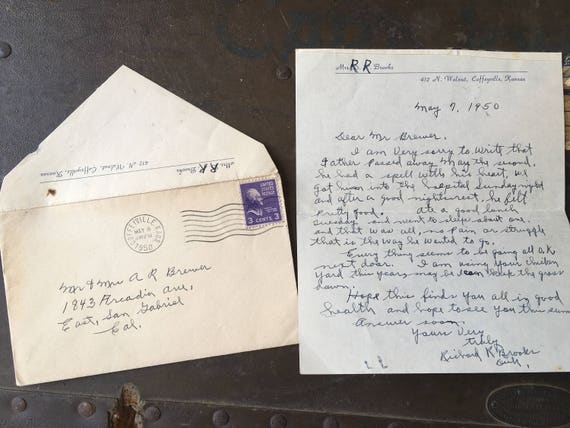 Mrs R R Brooks
412 N. Walnut, Coffeyville, Kansas
May 7, 1950
Dear Mr Brewer.
I am Very sorry to Write that
Father passed away May the second.
he had a spell with his heart, we
got him into the hospital sunday night
and after a good nights rest. he felt
pretty good. ate a good
tuesday and went to sleepe about one.
and that was all, no pain or struggle
that is the way he wanted to go.
Every thing seems to be going all O.K.
next door. I am using your chicken
yard this year may be I can keep the grass
down.
Hope this finds you all in good
health and hope to see you this sum
Answer soon.
Yours Very
truly
Richard R Brooks
Mrs. R R Brooks
412 N. Walnut, Coffeyville, Kansas
COFFEYVILLE KANS.
MAY 8
1950
3 CENTS 3
Mr & Mrs A R Brewer
1843 Arcadia Ave,
East, San Gabriel
Cal.